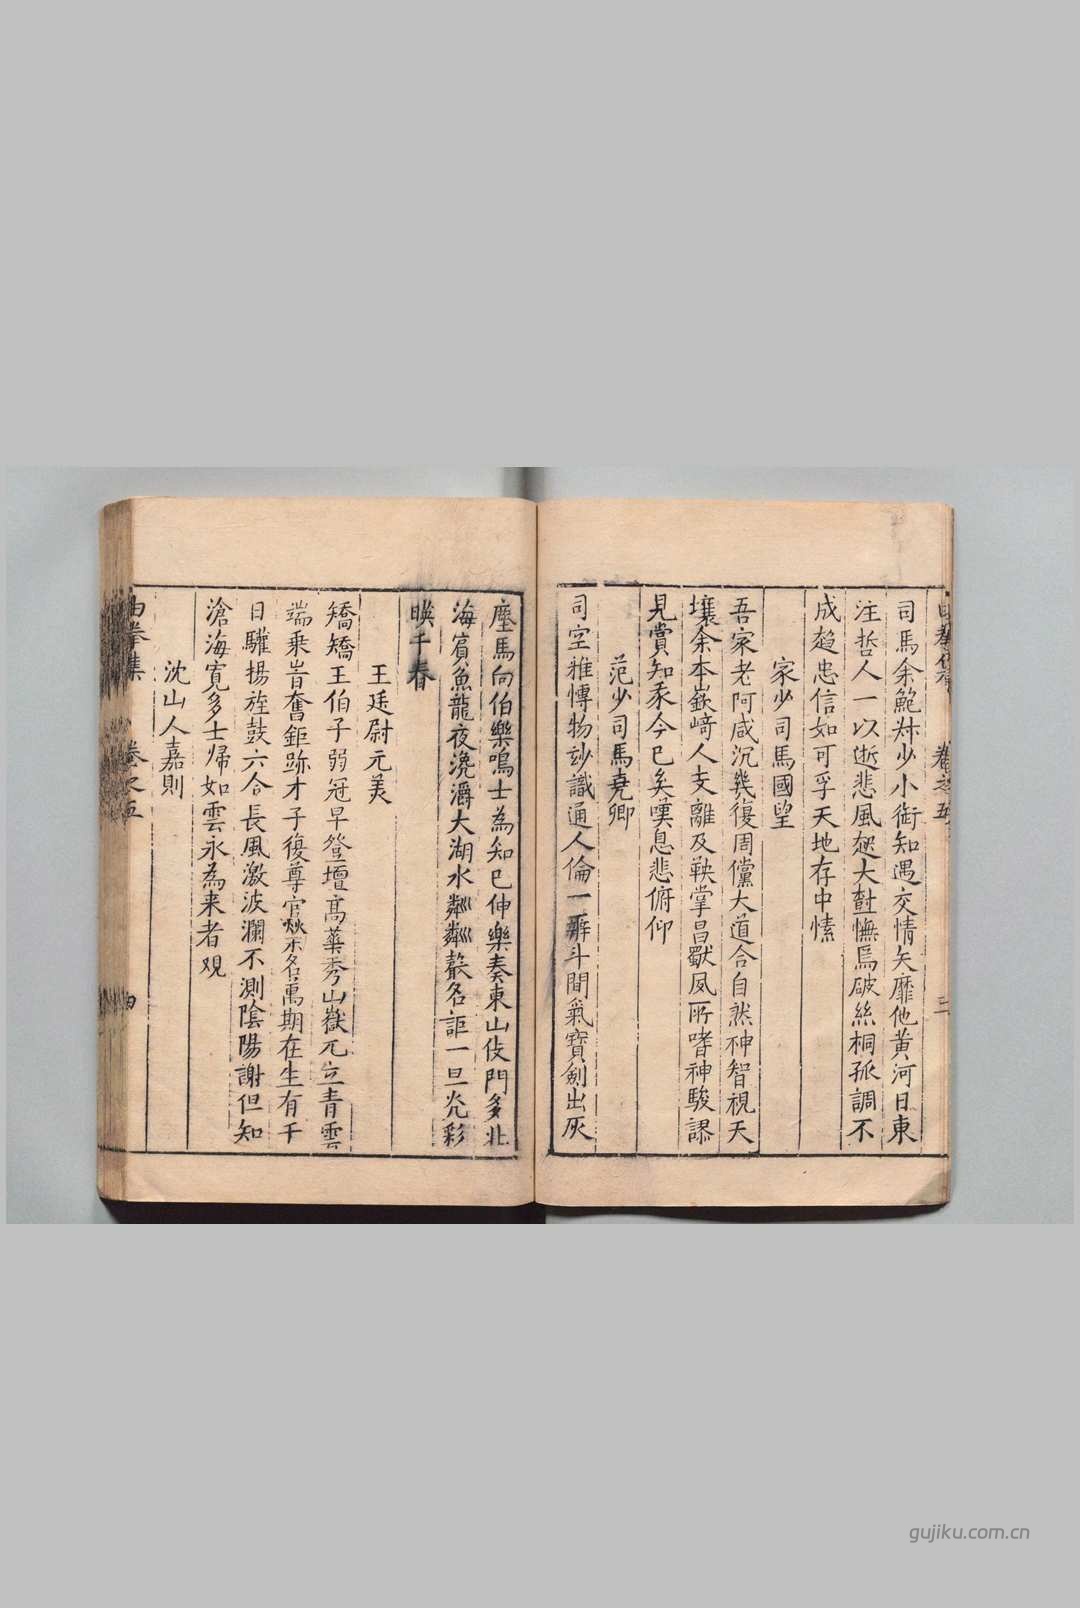 卷之五
三
司馬余鮑叔少小銜知遇交情矢靡他黄河日東
注哲人一以逝悲風起大樹憮焉破絲桐孤調不
成趍忠信如可孚天地存中愫
家少司馬國望
吾家老阿咸沉幾復周黨大道合自然神智視天
壤余本嶔﨑人支離及鞅掌昌歜夙所嗜神駿謬
見賞知希今已矣嘆息悲俯仰
范少司馬堯卿
司空雅愽物妙識通人倫一辭斗間氣寶劍出灰
塵馬向伯樂鳴士為知已伸樂奏東山伎門多北
海賔魚龍夜滉瀁大湖水粼粼藂名詎一旦光彩
暎千春
王廷尉元美
矯矯王伯子弱冠早登壇高華秀山嶽兀立青雲
端乘旹奮鉅跡才子復尊官㷋名萬期在生有千
日驩揚旌鼓六合長風激波瀾不測陰陽謝但知
滄海寛多士帰如雲永為来者观
沈山人嘉則
由拳集
卷之五
四
gujiku.com.cn